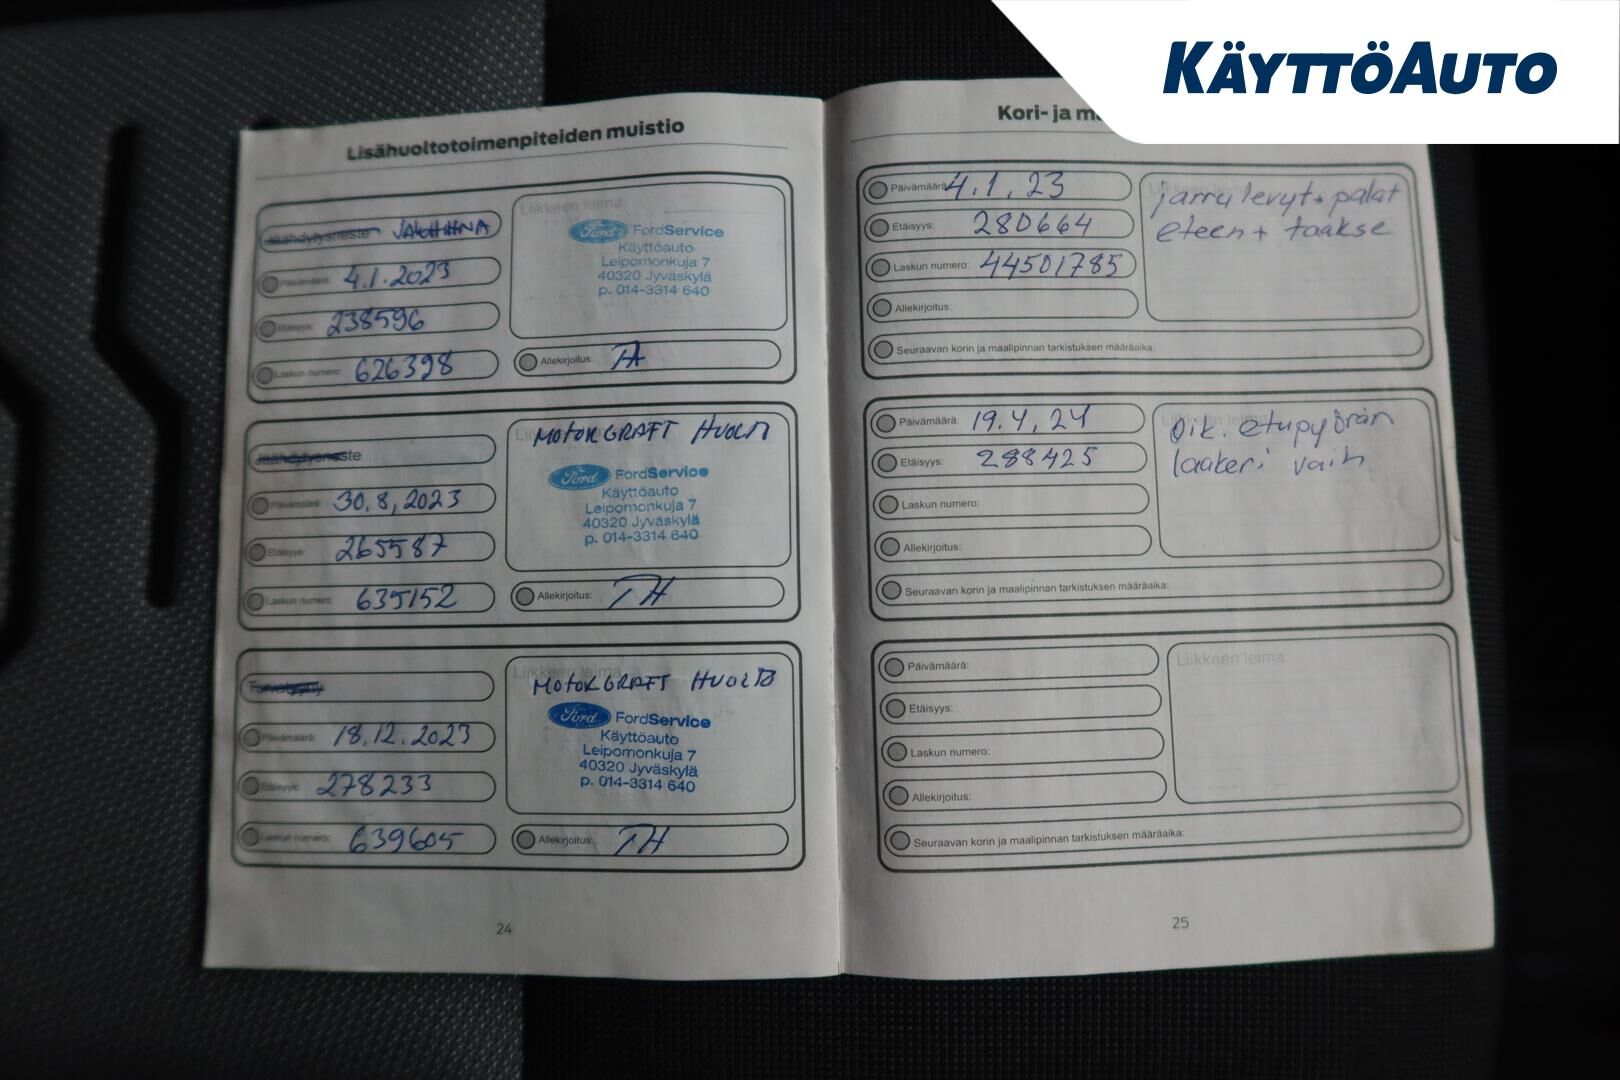 KÄYTTÖAUTO
Lisähuoltotoimenpiteiden muistio
Jäähdytysneste
Liikkeen leima
Ford FordService
Käyttöauto
Leipomonkuja 7
40320 Jyväskylä
p. 014-3314 640
Päivämäärä: 4.1.2023
Etäisyys: 238596
Laskun numero: 626398
Allekirjoitus:
Jäähdytysneste
MOTORCRAFT HUOLTO
Ford FordService
Käyttöauto
Leipomonkuja 7
40320 Jyväskylä
p. 014-3314 640
Päivämäärä: 30.8.2023
Etäisyys: 265587
Laskun numero: 635152
Allekirjoitus: TH
Liikkeen leima
MOTORCRAFT HUOLTO
Ford FordService
Käyttöauto
Leipomonkuja 7
40320 Jyväskylä
p. 014-3314 640
Päivämäärä: 18.12.2023
Etäisyys: 278233
Laskun numero: 639605
Allekirjoitus: TH
24
Kori- ja
Päivämäärä: 4.1.23
Etäisyys: 280664
Laskun numero: 44501785
Allekirjoitus:
Seuraavan korin ja maalipinnan tarkistuksen määräaika:
jarrulevyt + palat
eteen + taakse
Päivämäärä: 19.4.24
Etäisyys: 288425
Laskun numero:
Allekirjoitus:
Seuraavan korin ja maalipinnan tarkistuksen määräaika:
Oik. etupyörän
laakeri vaih
Päivämäärä:
Etäisyys:
Laskun numero:
Allekirjoitus:
Seuraavan korin ja maalipinnan tarkistuksen määräaika:
Liikkeen leima
25